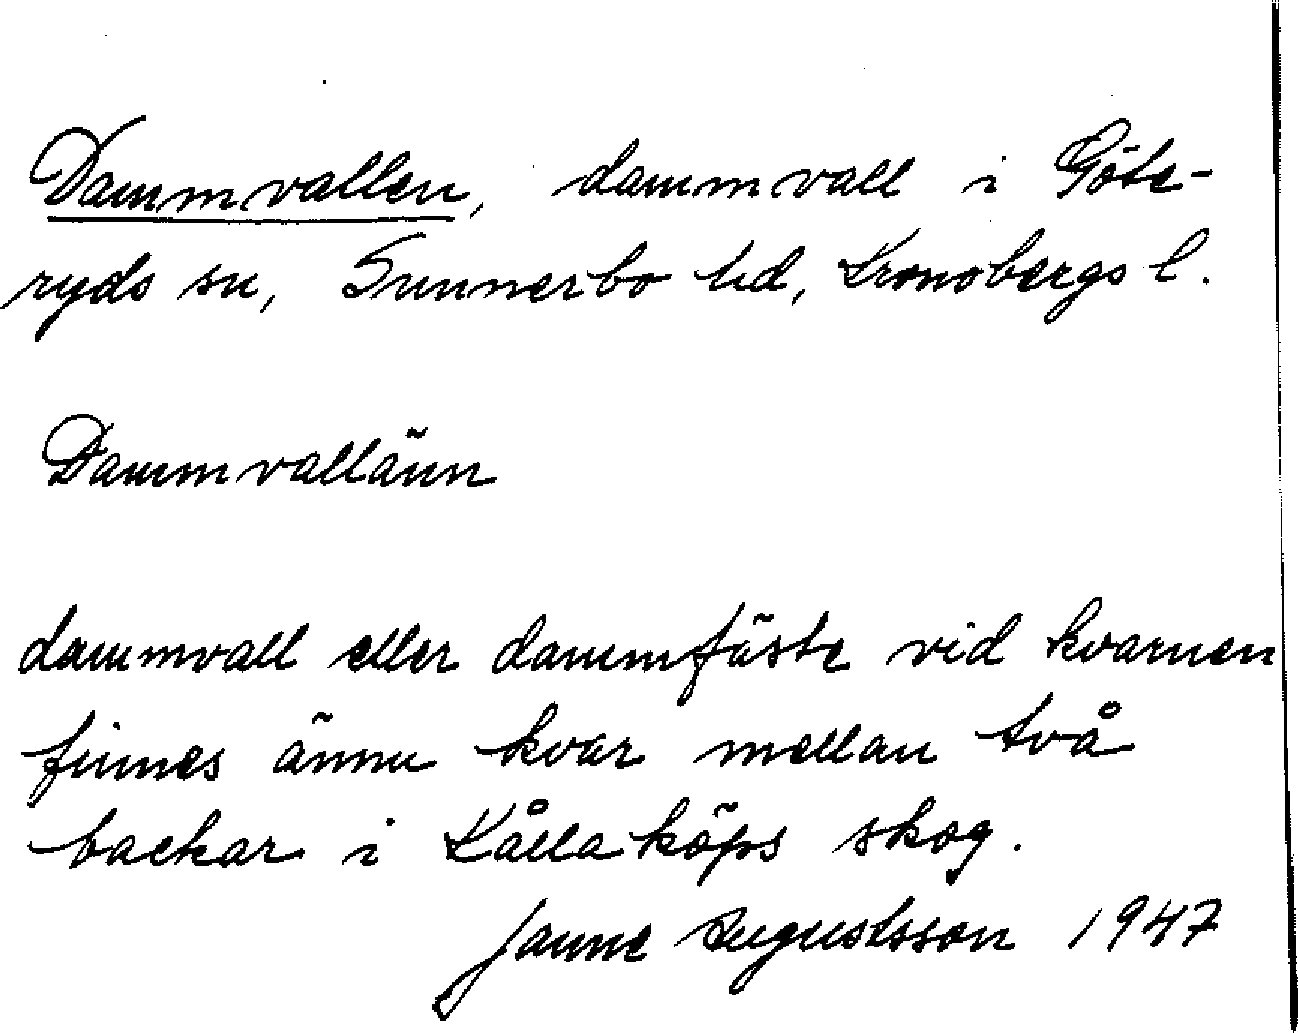 Dammvallen, dammvall i Göte-
ryds sn, Sunnerbo hd, Kronobergs l.
Dammvallänn
dammvall eller dammfäste vid kvarnen
finnes ännu kvar mellan två
backar i Kållaköps skog.
Janne Augustsson 1947